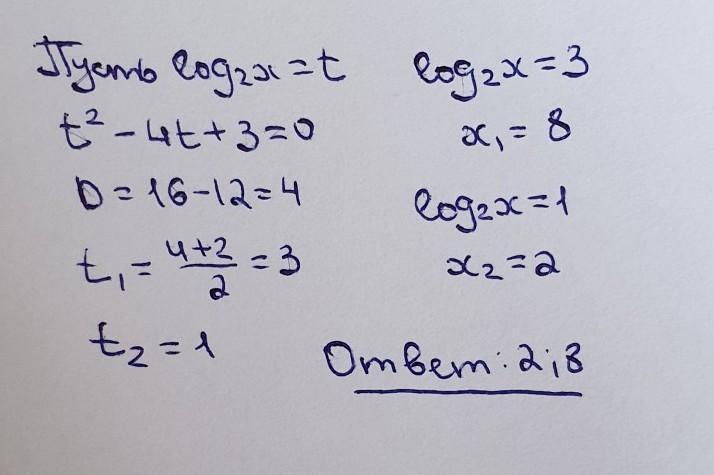 Пусть log₂x = t
t² - 4t + 3 = 0
D = 16 - 12 = 4
t₁ = (4+2)/2 = 3
t₂ = 1
log₂x = 3
x₁ = 8
log₂x = 1
x₂ = 2
Ответ: 2; 8